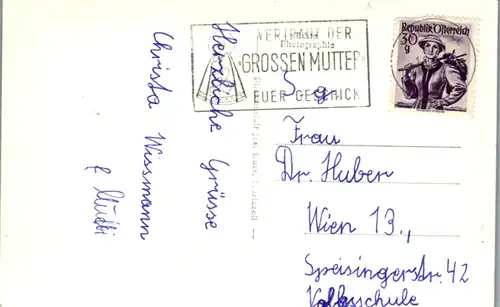 Herzliche Grüsse
Christa Wissmann
& Mutti
VERTRAUT DER
GROSSEN MUTTER
EUER GESCHICK
Photographie
Republik Österreich
30
g
S g
Frau
Dr. Huber
Wien 13.,
Speisingerstr. 42
Volksschule